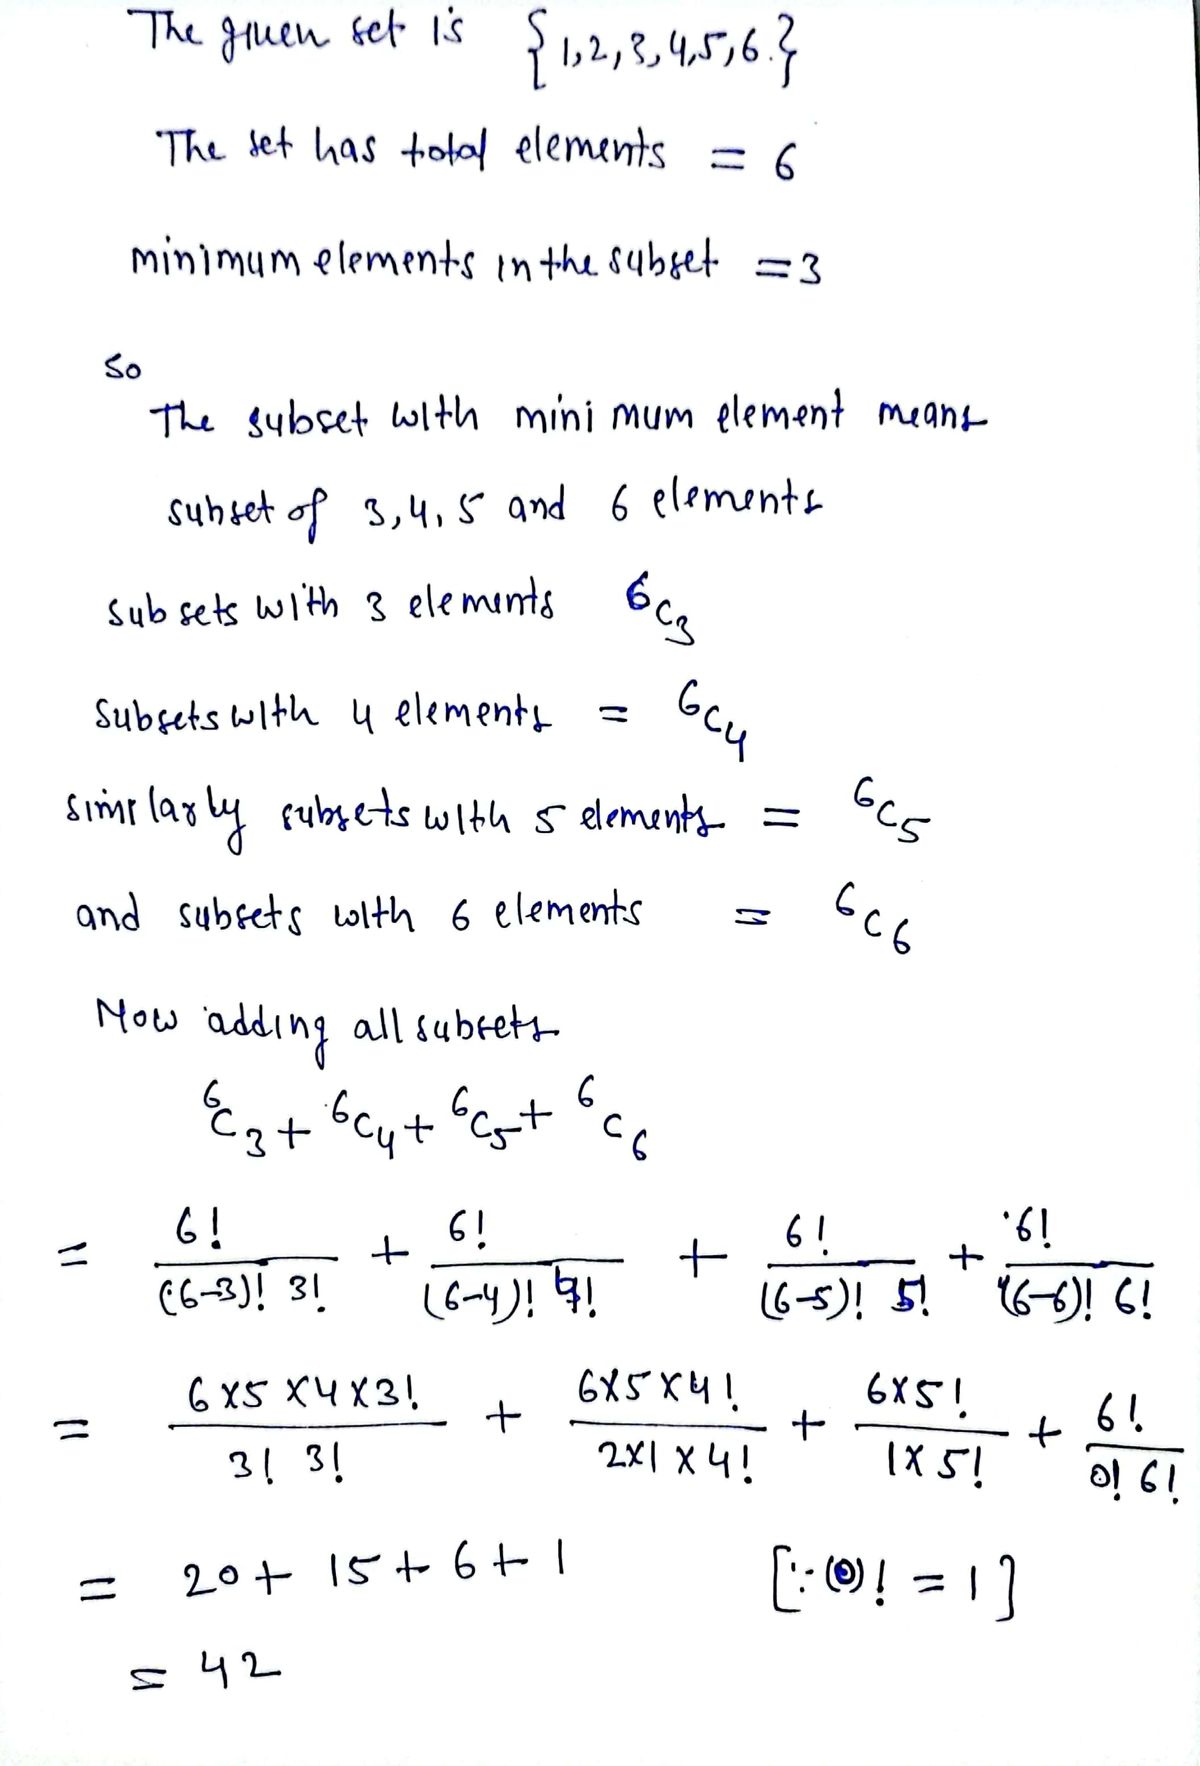 The given set is {1,2,3,4,5,6.}
The set has total elements = 6
minimum elements in the subset = 3
so
The subset with minimum element means
subset of 3,4,5 and 6 elements
subsets with 3 elements ⁶C₃
Subsets with 4 elements = ⁶C₄
similarly subsets with 5 elements = ⁶C₅
and subsets with 6 elements = ⁶C₆
Now adding all subsets
⁶C₃ + ⁶C₄ + ⁶C₅ + ⁶C₆
= 6!/((6-3)! 3!) + 6!/((6-4)! 4!) + 6!/((6-5)! 5!) + 6!/((6-6)! 6!)
= (6×5×4×3!)/(3! 3!) + (6×5×4!)/(2×1×4!) + (6×5!)/(1×5!) + 6!/(0! 6!)
= 20 + 15 + 6 + 1 [∵ (0)! = 1]
= 42